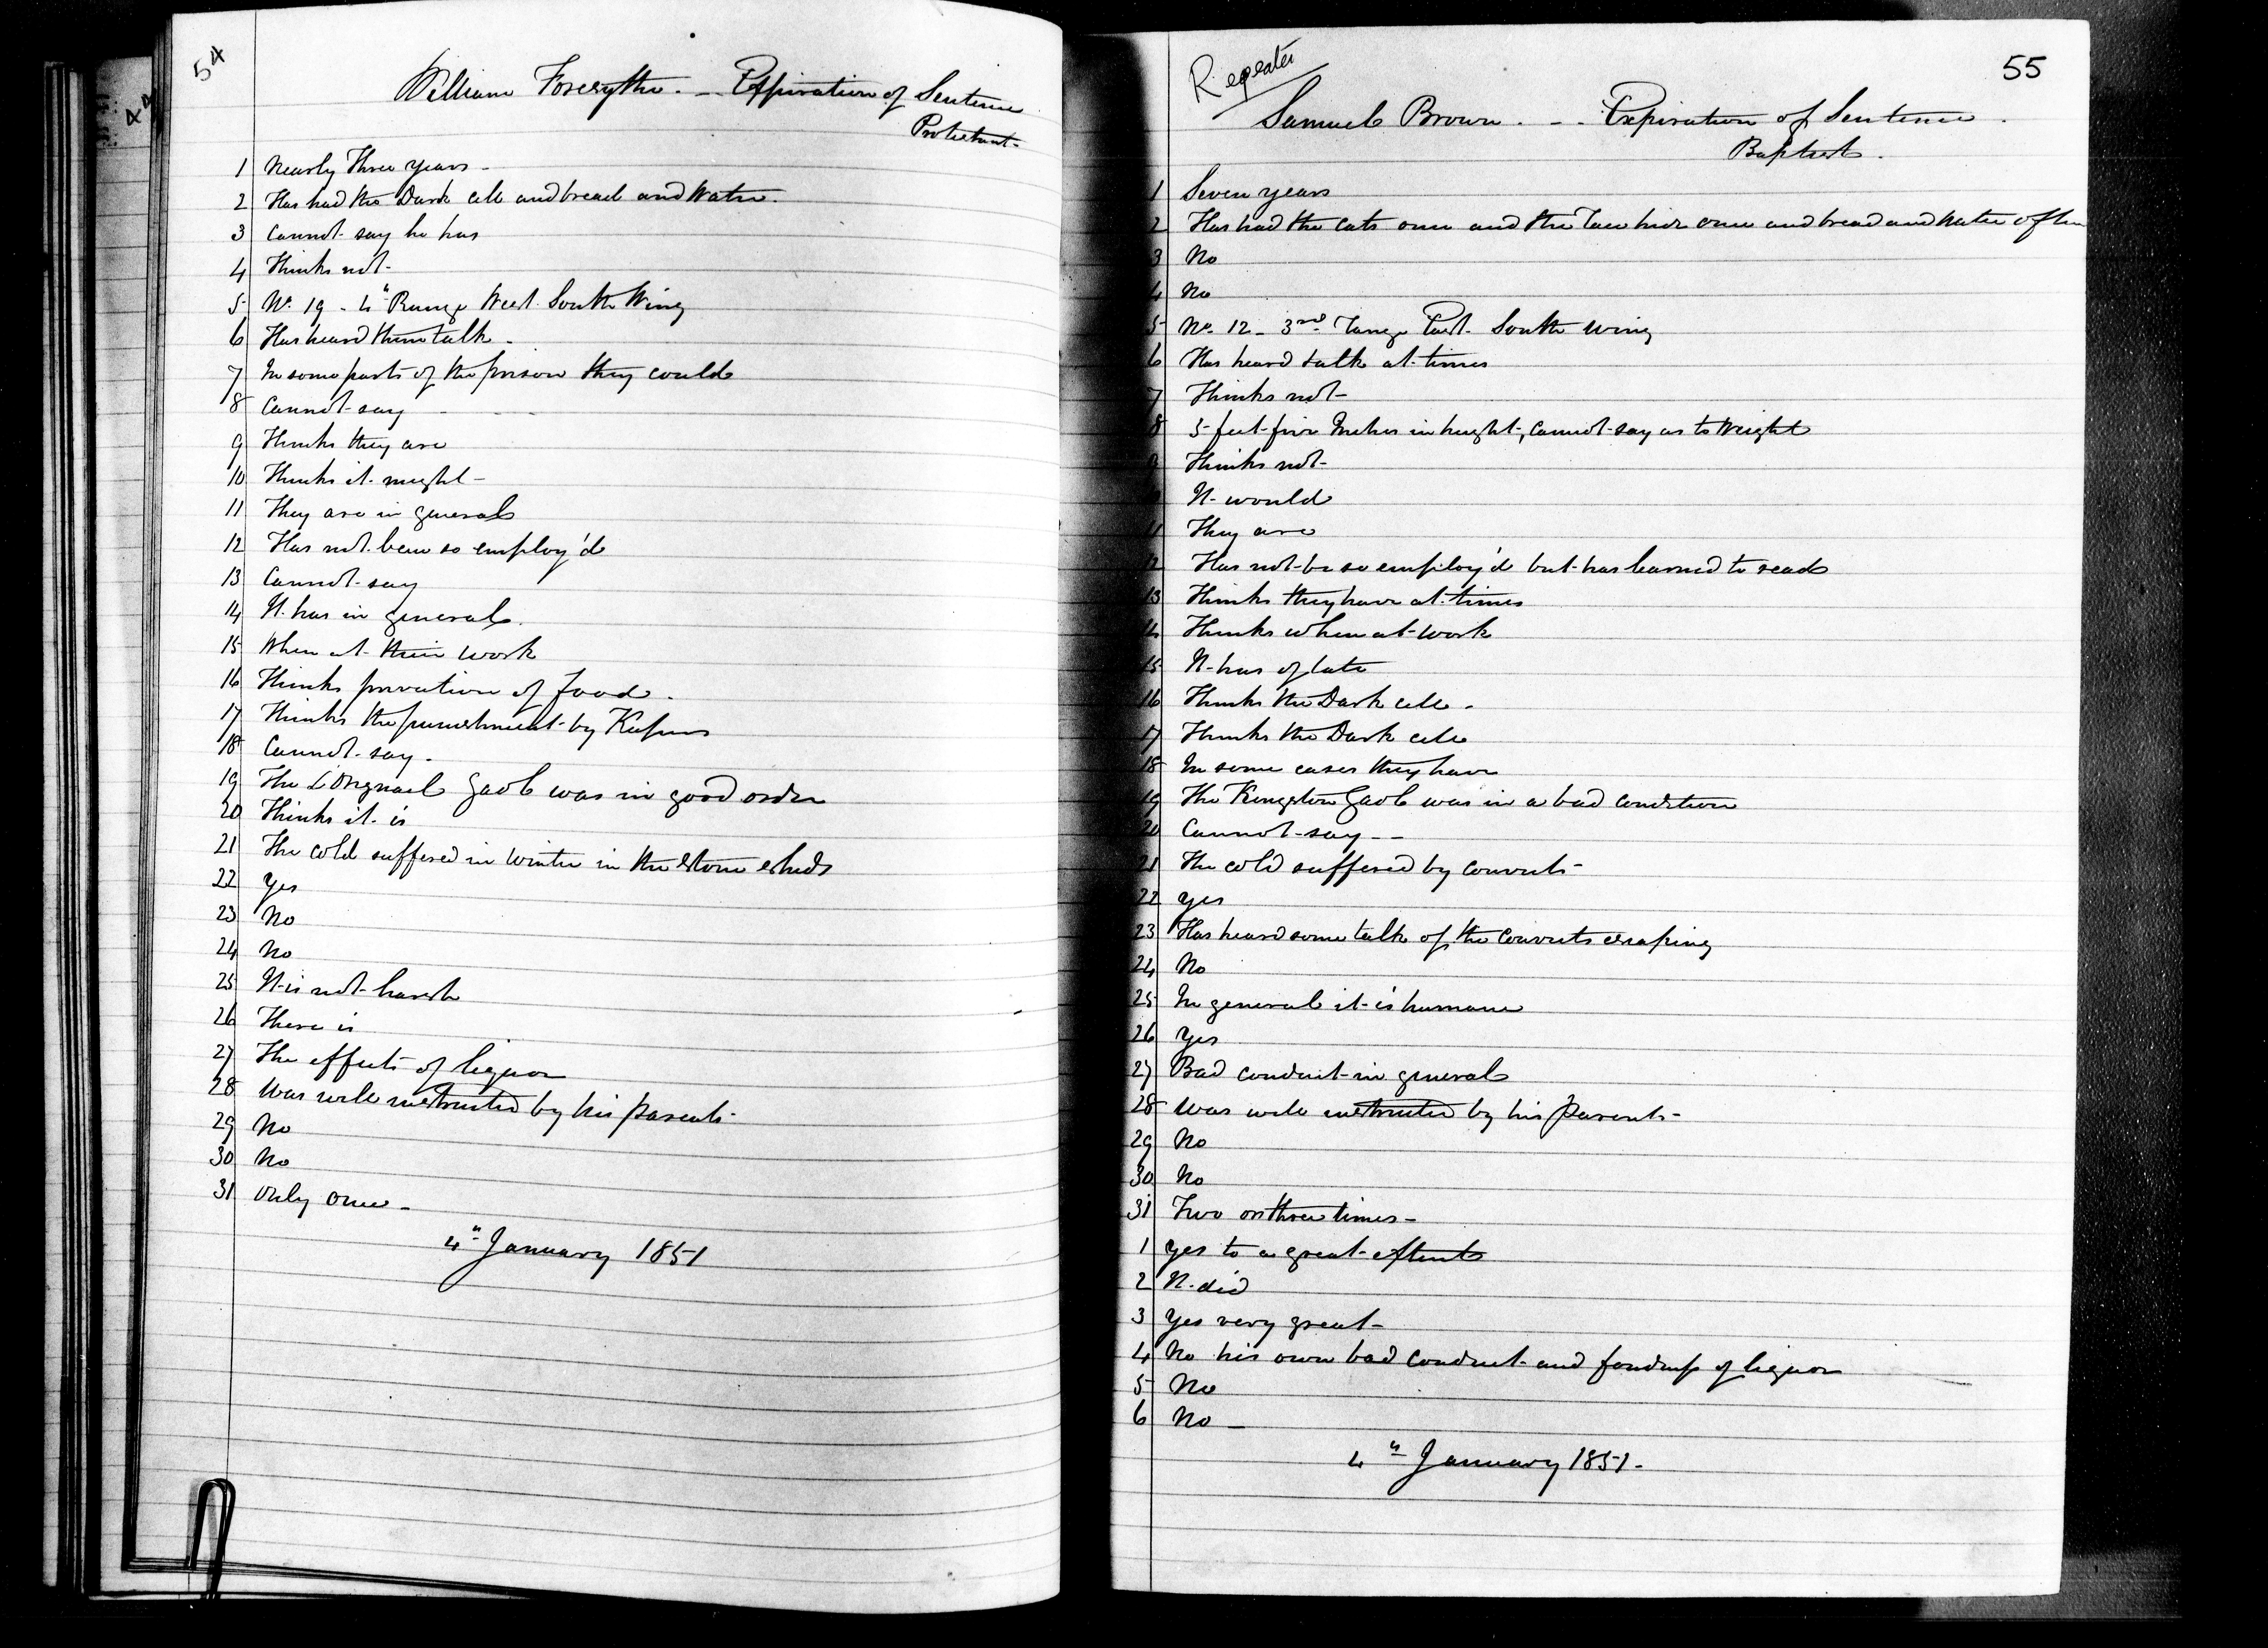 54
William Forsythe. — Expiration of Sentence
Protestant-
1 Nearly Three years -
2 Has had the Dark cell and bread and Water.
3 Cannot say he has
4 Thinks not-
5 No. 19 - 4" Range West South Wing
6 Has heard them talk -
7 In some parts of the prison they could
8 Cannot say - - - -
9 Thinks they are
10 Thinks it might -
11 They are in general
12 Has not been so employ'd
13 Cannot say
14 It has in general.
15 When at their work
16 Thinks privation of food.
17 Thinks the punishment by Keepers
18 Cannot say.
19 The L'Orignael Gaol was in good order
20 Thinks it is
21 The cold suffered in Winter in the Stone sheds
22 Yes
23 No
24 No
25 It is not harsh
26 There is
27 The effects of liquor
28 Was well instructed by his parents-
29 No
30 No
31 Only once -
4" January 1851
Repeater
55
Samuel Brown. - - Expiration of Sentence.
Baptist.
1 Seven years
2 Has had the Cats once and the hide once and bread and water often
3 No
4 No
5 No. 12 - 3rd range East South Wing
6 Has heard talk at times
7 Thinks not-
8 5 feet five Inches in height, cannot say as to Weight
9 Thinks not-
It would
11 They are
12 Has not be so employ'd but has learned to read
13 Thinks they have at times
14 Thinks when at work
15 It has of late
16 Thinks the Dark cell.
17 Thinks the Dark cell
18 In some cases they have
19 The Kingston Gaol was in a bad condition
20 Cannot say - -
21 The cold suffered by Convicts-
22 Yes
23 Has heard some talk of the Convicts escaping
24 No
25 In general it is humane
26 Yes
27 Bad conduct in general
28 Was well instructed by his Parents-
29 No
30 No
31 Two or three times -
1 Yes to a great extent
2 It did
3 Yes very great-
4 No his own bad conduct and fondness of liquor
5 No
6 No -
4" January 1851.